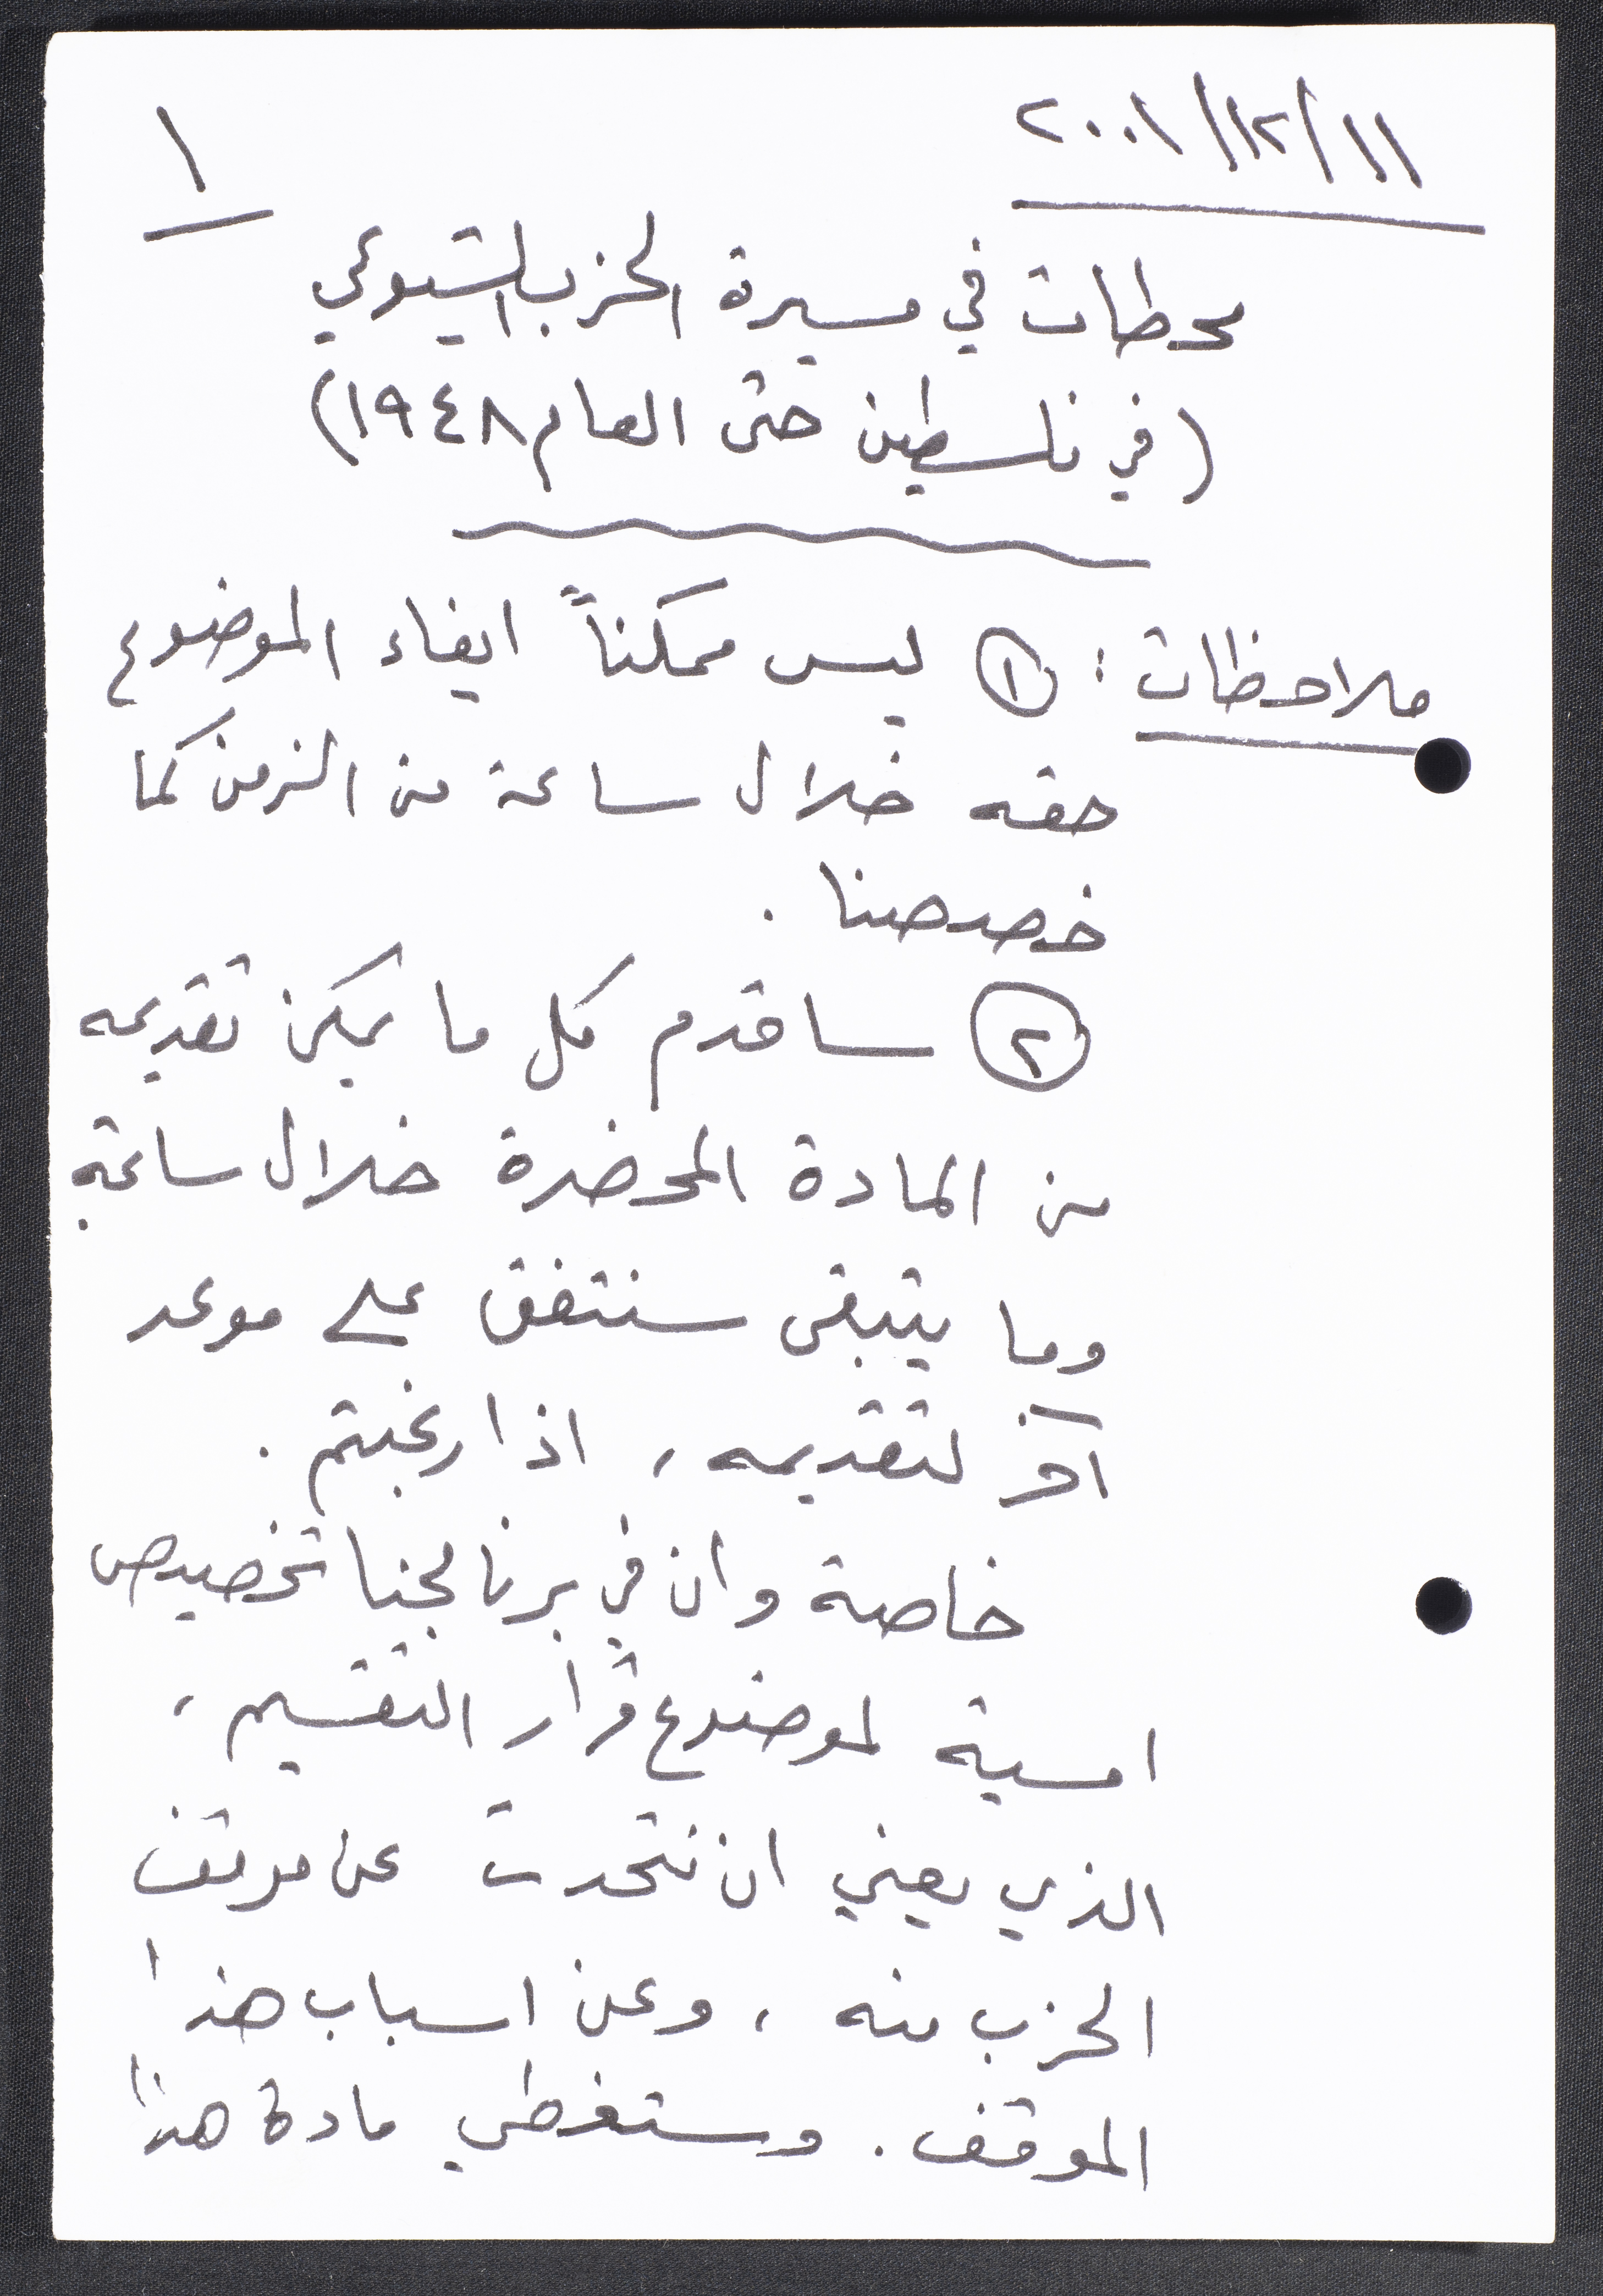 ٢٠٠١/١٢/١١
١
محطات في مسيرة الحزب الشيوعي
(في فلسطين حتى العام ١٩٤٨)
ملاحظات : ① ليس ممكناً ايفاء الموضوع
حقه خلال ساعة من الزمن كما
خصصنا .
② ساقدم كل ما يمكن تقديمه
من المادة المحضرة خلال ساعة
وما يتبقى سنتفق على موعد
آخر لتقديمه ، اذا رغبتم .
خاصة وان في برنامجنا تخصيص
امسية لموضوع قرار التقسيم ،
الذي يعني ان نتحدث عن موقف
الحزب منه ، وعن اسباب هذا
الموقف . وستغطي مادة هذا